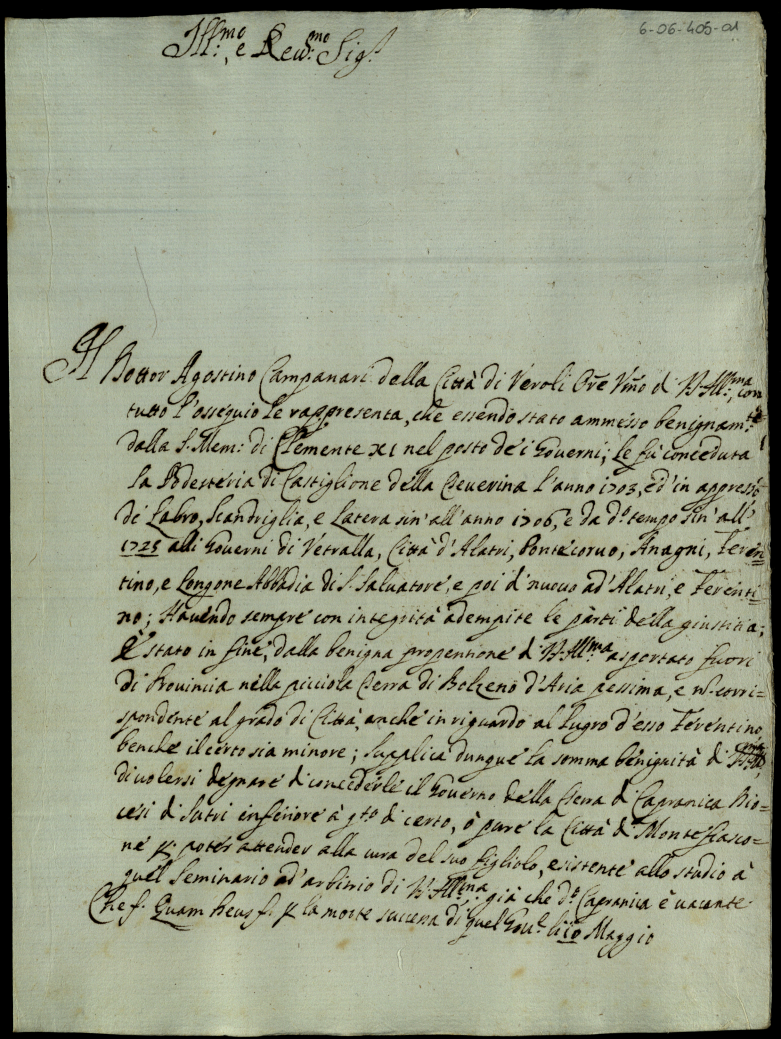 6-06-405-01
Ill:mo, e Rev:mo Sig:r
Il Dottor Agostino Campanari della Città di Veroli Ore Vmo di V.S. Ill:ma, con
tutto l'osseguio le rappresenta, che essendo stato ammesso benignam:te
dalla S. Mem: di Clemente XI nel posto de i Governi; le fù conceduta
la Podesteria di Castiglione della Teverina l'anno 1703, ed' in appresso
di Labro, Scandriglia, e Latera sin' all'anno 1706, e da d:o tempo sin' all'
1725 alli Governi di Vetralla, Città d'Alatri, Pontecorvo, Anagni, Feren=
tino, e Longone Abbadia di S. Salvatore, e poi di nuovo ad' Alatri, e Ferenti=
no; Havendo sempre con integrità adempite le parti della giustitia;
È stato in fine, dalla benigna propentione di V.S. Ill:ma asportato fuori
di Provincia nella picciola Terra di Bolseno d'Aria pessima, e n: corri=
spondente al grado di Città, anche in riguardo al lugro d'esso Ferentino,
benche il certo sia minore; Supplica dunque la somma benignità di V.S. Ill:ma
di volersi degnare di concederle il Governo della Terra di Capranica Dio=
cesi di Sutri inferiore à q:to di certo, ò pure la Città di Monte Fiasco=
ne p: poter attender alla cura del suo figliolo, esistente allo studio à
quel Seminario ad' arbitrio di V.S. Ill:ma, già che d:a Capranica è vacante
Che f. Quam Deus f. p la morte succeda di quel Gov:e li 10 Maggio